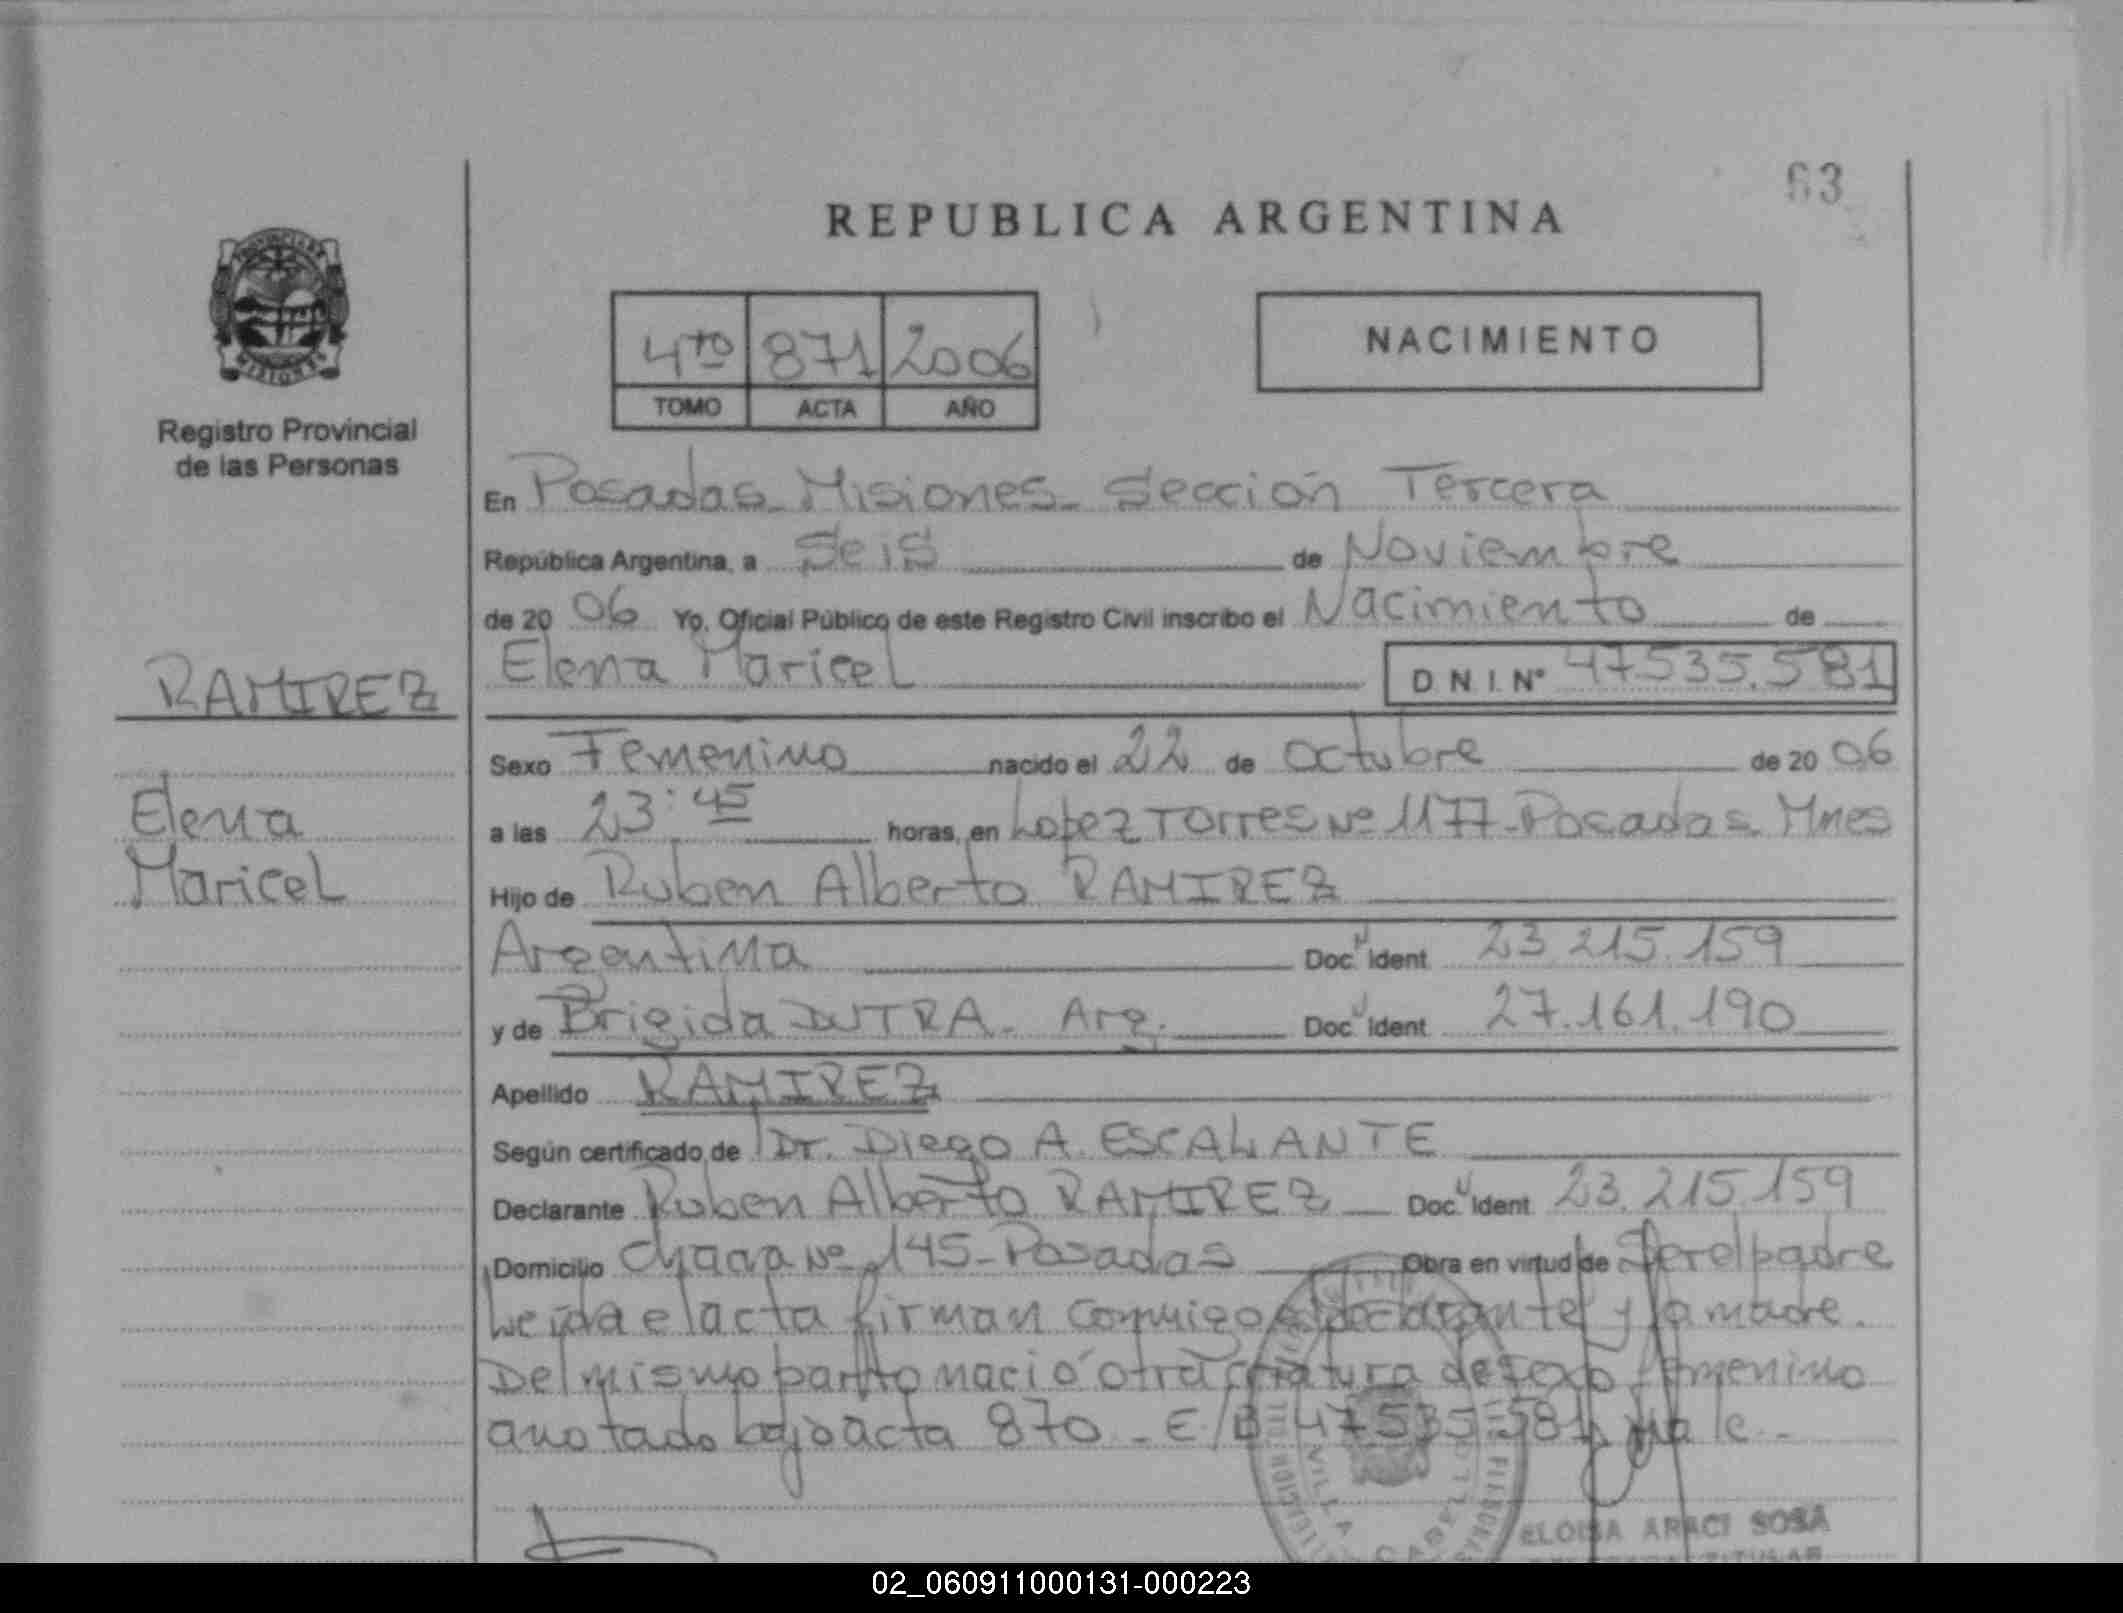 63
REPUBLICA ARGENTINA
4to 871 2006
TOMO ACTA AÑO
NACIMIENTO
Registro Provincial
de las Personas
En Posadas - Misiones - Sección Tercera
República Argentina, a Seis de Noviembre
de 20 06 Yo, Oficial Público de este Registro Civil inscribo el Nacimiento de
Elena Maricel D.N.I. Nº 47.535.581
RAMIREZ
Sexo Femenino nacido el 22 de Octubre de 20 06
Elena
a las 23:45 horas, en Lopez Torres Nº 1177 - Posadas Mnes
Maricel
Hijo de Ruben Alberto RAMIREZ
Argentina Doc. Ident. 23.215.159
y de Brigida DUTRA - Arg. Doc. Ident. 27.161.190
Apellido RAMIREZ
Según certificado de Dr. Diego A. ESCALANTE
Declarante Ruben Alberto RAMIREZ Doc. Ident. 23.215.159
Domicilio Chacra Nº 145 - Posadas Obra en virtud de Ser el padre
Leida el acta firman conmigo el declarante y la madre.
Del mismo parto nació otra criatura de sexo femenino
anotado bajo acta 870 - E/B 47535581 Vale -
VILLA CABELLO
ELOISA ARACI SOSA
TITULAR
02_060911000131-000223